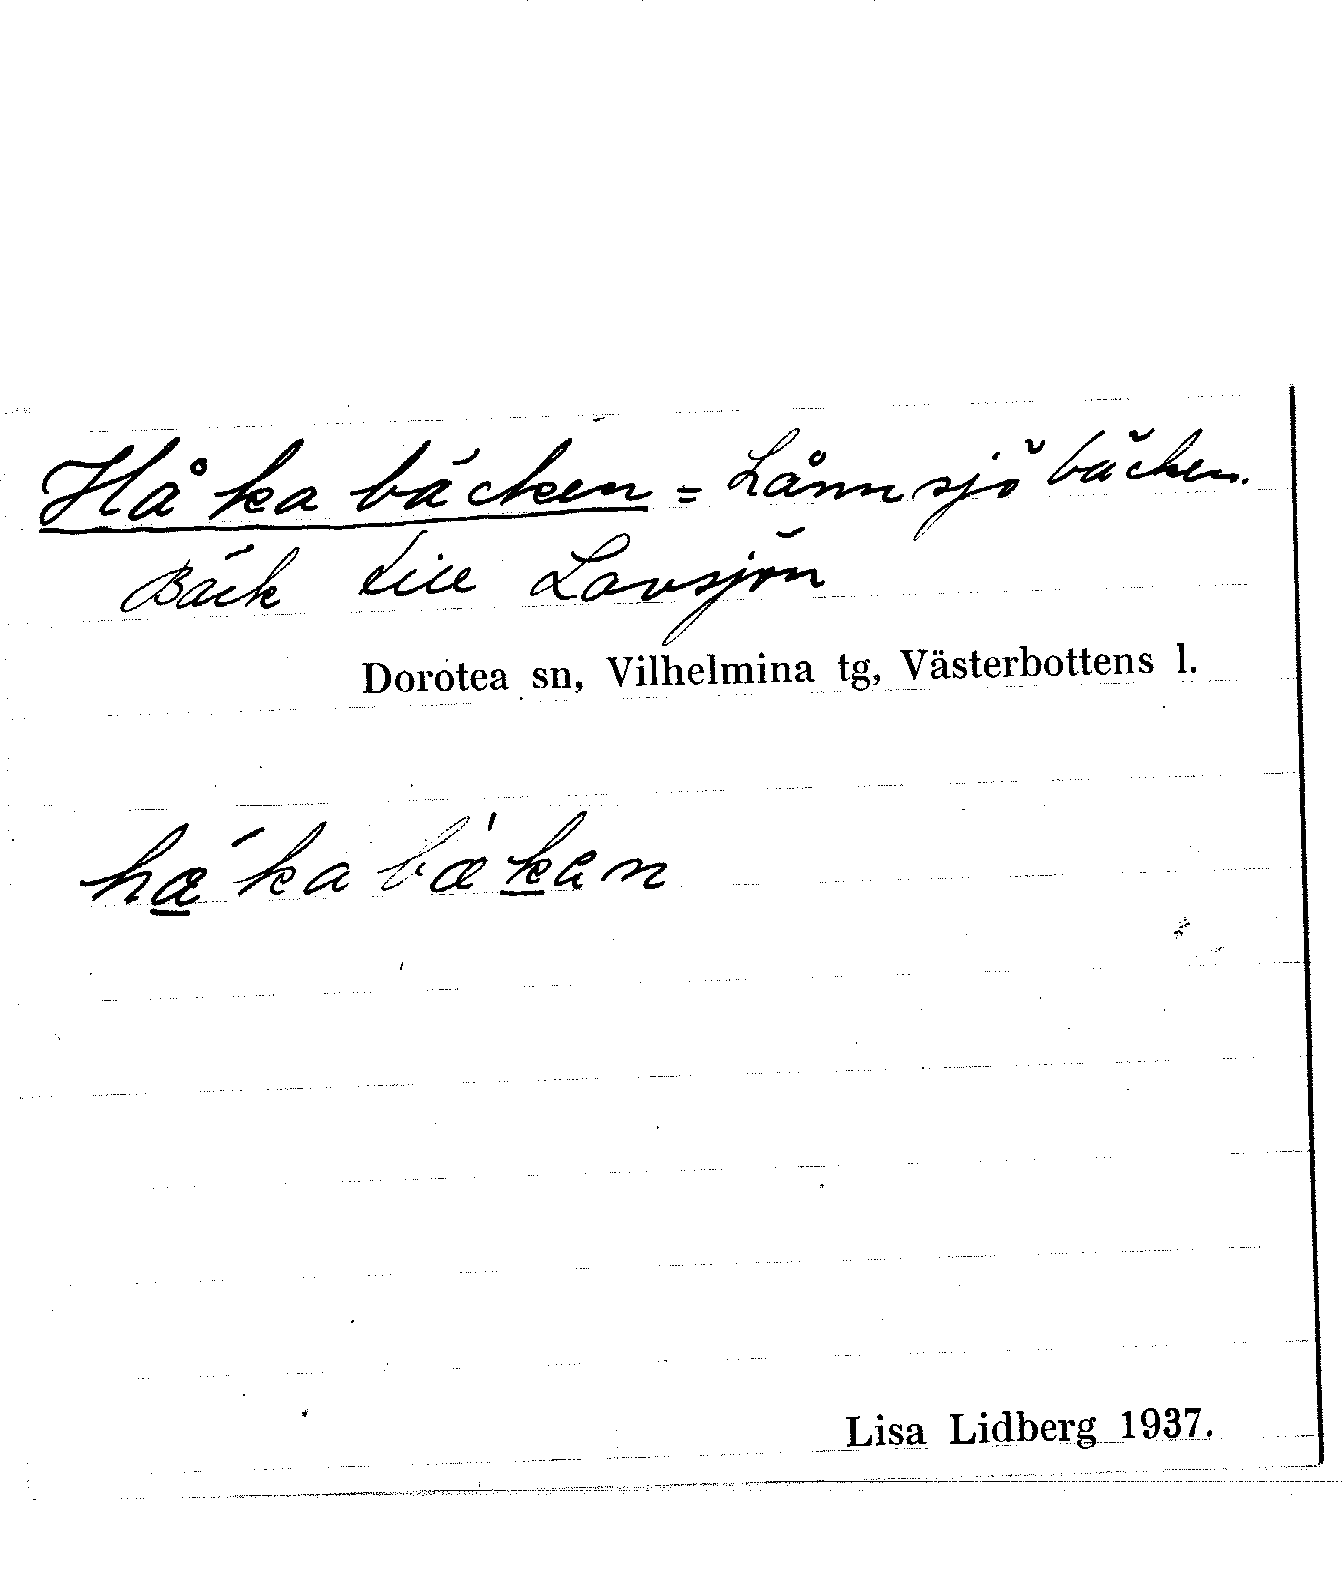 Håkabäcken = Lånnsjöbäcken.
Bäck till Lavsjön
Dorotea sn, Vilhelmina tg, Västerbottens l.
hǽ̱kabæ̀ḵen
Lisa Lidberg 1937.